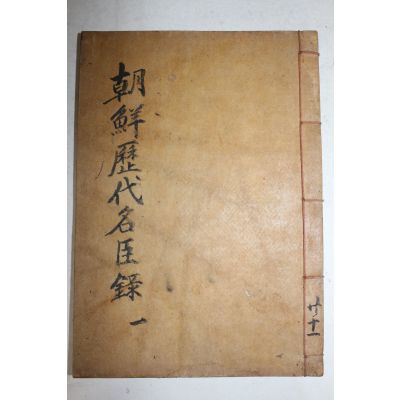 朝鮮歷代名臣錄 一
共十一